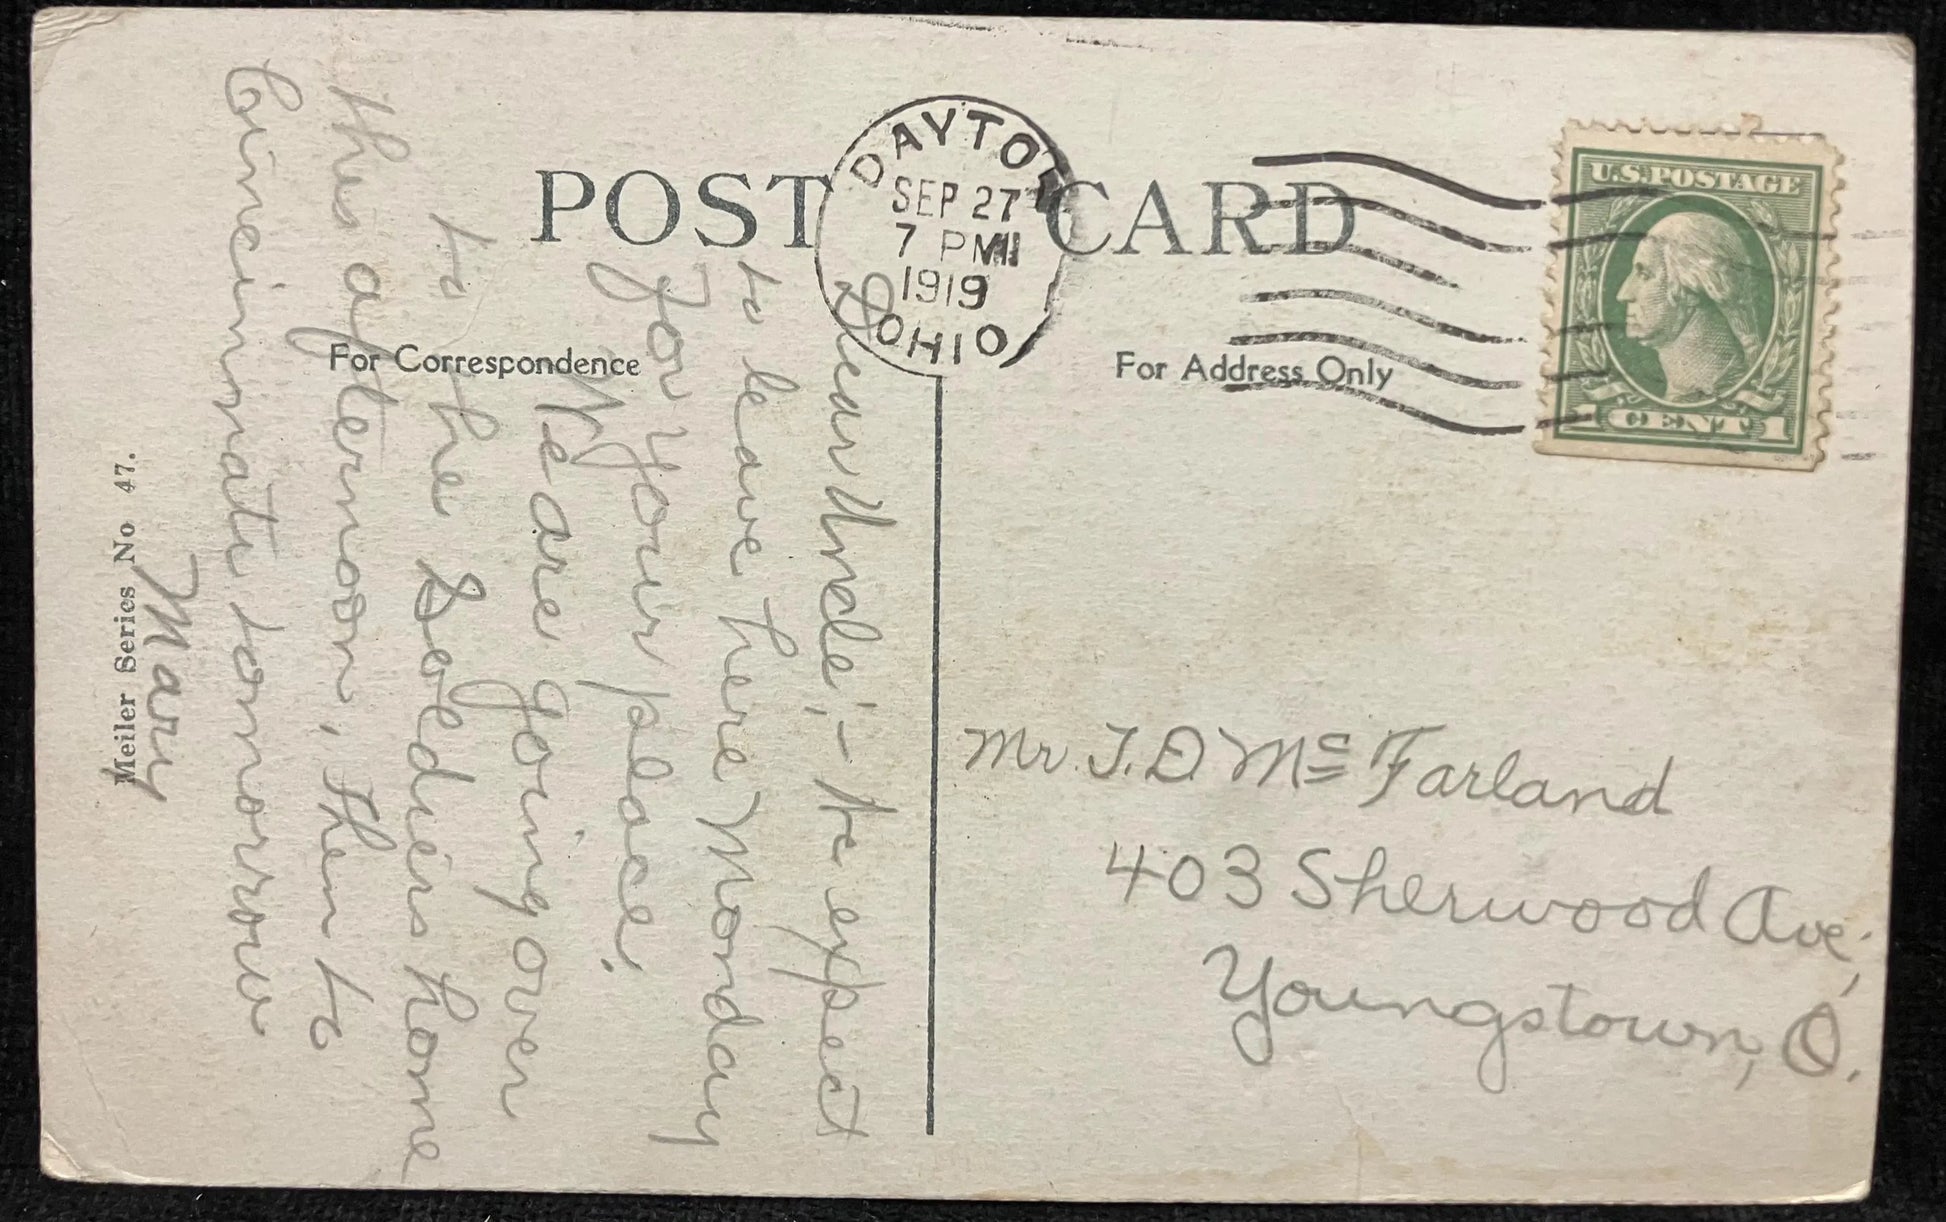 POST CARD
DAYTON
SEP 27
7 PM
1919
OHIO
U.S. POSTAGE
1 CENT 1
For Correspondence
For Address Only
Dear Uncle,- We expect
to leave here Monday
for your place.
We are going over
to the Soldiers home
this afternoon, then to
Cincinnati tomorrow
Mary
Mr. T. D. Mc Farland
403 Sherwood Ave,
Youngstown, O.
Meiler Series No 47.